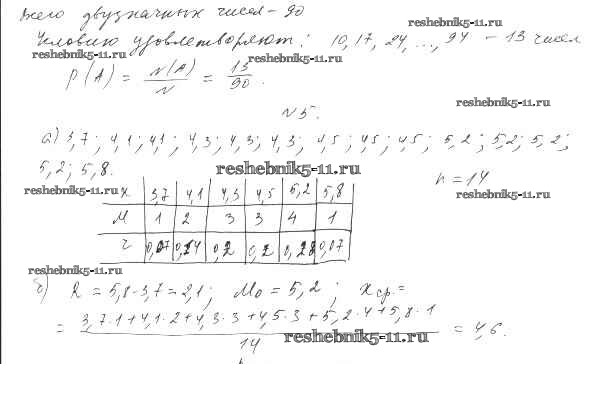 Всего двузначных чисел - 90
reshebnik5-11.ru
Условию удовлетворяют: 10, 17, 24, ..., 94 - 13 чисел
reshebnik5-11.ru
reshebnik5-11.ru
P(A) = N(A)/N = 13/90.
reshebnik5-11.ru
N 5.
а) 3,7; 4,1; 4,1; 4,3; 4,3; 4,3; 4,5; 4,5; 4,5; 5,2; 5,2; 5,2;
5,2; 5,8.
reshebnik5-11.ru
n = 14
reshebnik5-11.ru
reshebnik5-11.ru
X 3,7 4,1 4,3 4,5 5,2 5,8
M 1 2 3 3 4 1
r 0,07 0,14 0,2 0,2 0,28 0,07
reshebnik5-11.ru
б) R = 5,8-3,7=2,1; Mo = 5,2; Xср.=
= (3,7·1+4,1·2+4,3·3+4,5·3+5,2·4+5,8·1)/14 = 4,6.
reshebnik5-11.ru